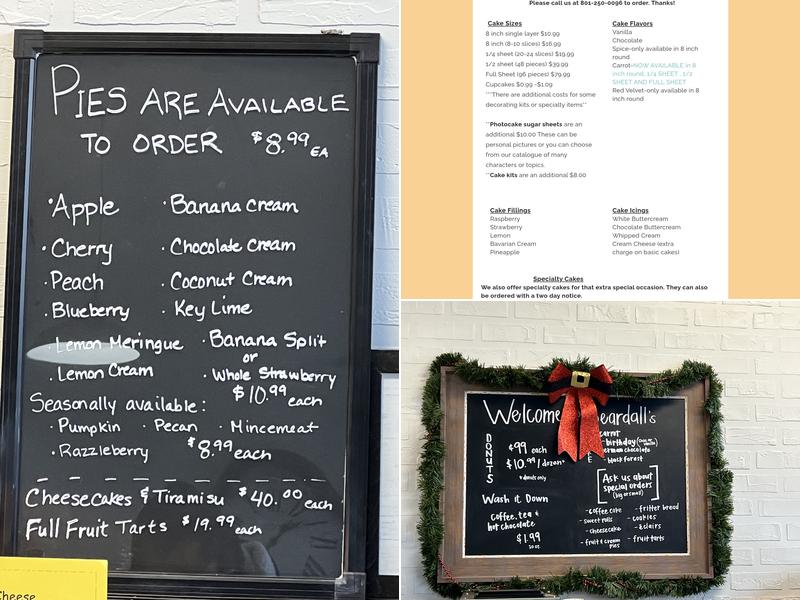 PIES ARE AVAILABLE
TO ORDER $8.99 EA
• Apple
• Cherry
• Peach
• Blueberry
• Lemon Meringue
• Lemon Cream
• Banana Cream
• Chocolate Cream
• Coconut Cream
• Key Lime
• Banana Split
or
• Whole Strawberry
$10.99 each
Seasonally available:
• Pumpkin • Pecan • Mincemeat
• Razzleberry $8.99 each
Cheesecakes & Tiramisu $40.00 each
Full Fruit Tarts $19.99 each
Cheese
Please call us at 801-250-0096 to order. Thanks!
Cake Sizes
8 inch single layer $10.99
8 inch (8-10 slices) $16.99
1/4 sheet (20-24 slices) $19.99
1/2 sheet (48 pieces) $39.99
Full Sheet (96 pieces) $79.99
Cupcakes $0.99 -$1.09
***There are additional costs for some
decorating kits or specialty items**
**Photocake sugar sheets are an
additional $10.00 These can be
personal pictures or you can choose
from our catalogue of many
characters or topics.
**Cake kits are an additional $8.00
Cake Flavors
Vanilla
Chocolate
Spice-only available in 8 inch
round
Carrot-NOW AVAILABLE in 8
inch round, 1/4 SHEET , 1/2
SHEET AND FULL SHEET
Red Velvet-only available in 8
inch round
Cake Fillings
Raspberry
Strawberry
Lemon
Bavarian Cream
Pineapple
Cake Icings
White Buttercream
Chocolate Buttercream
Whipped Cream
Cream Cheese (extra
charge on basic cakes)
Specialty Cakes
We also offer specialty cakes for that extra special occasion. They can also
be ordered with a two day notice.
Welcome eardall's
DONUTS
¢99 each
$10.99/dozen*
*donuts only
Wash it Down
Coffee, tea &
hot chocolate
$1.99
E
carrot
-birthday
erman chocolate
-black forest
Ask us about
special orders
(big or small)
-coffee cake
-sweet rolls
-cheesecake
-fruit & cream
pies
-fritter bread
-cookies
-eclairs
-fruit tarts